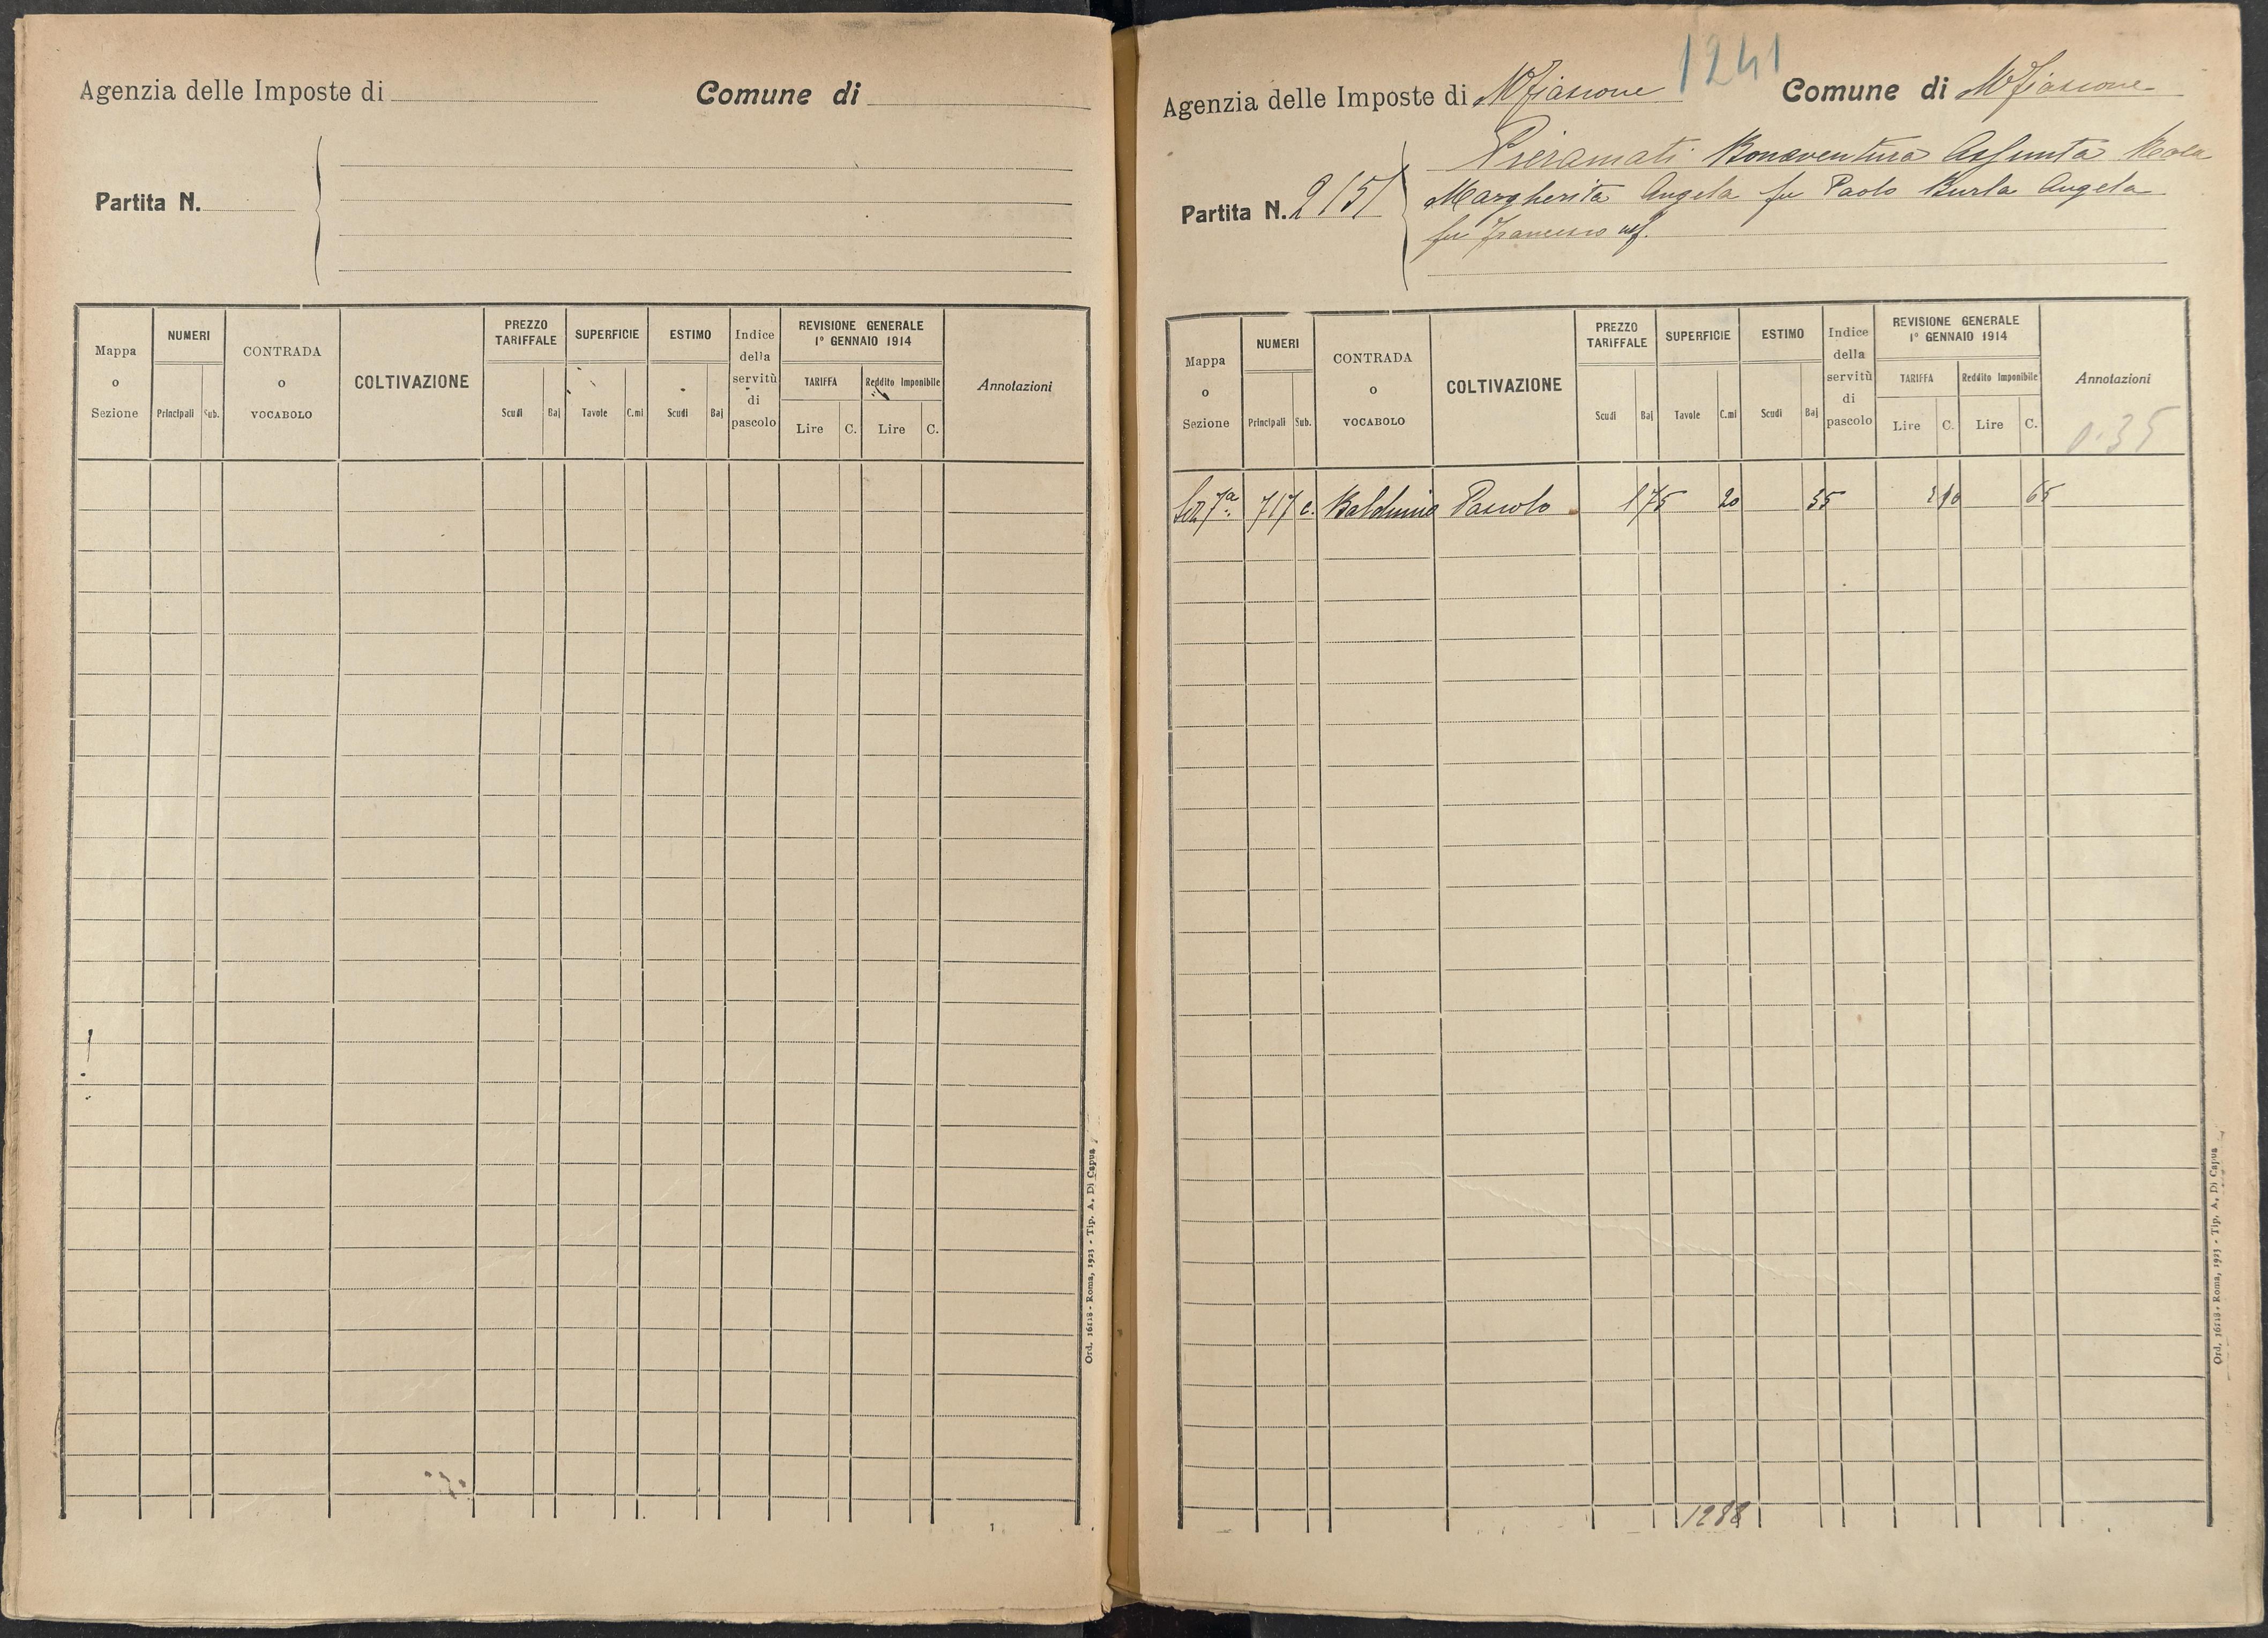 Agenzia delle Imposte di Comune di
Partita N.
Mappa o Sezione NUMERI Principali Sub. CONTRADA o VOCABOLO COLTIVAZIONE PREZZO TARIFFALE Scudi Baj SUPERFICIE Tavole C.mi ESTIMO Scudi Baj Indice della servitù di pascolo REVISIONE GENERALE 1° GENNAIO 1914 TARIFFA Lire C. Reddito Imponibile Lire C. Annotazioni
Ord. 16118 - Roma, 1923 - Tip. A. Di Capua
1
1241
Agenzia delle Imposte di Mfiascone Comune di Mfiascone
Pieramati Bonaventura Assunta
Partita N. 2151 Margherita Angela fu Paolo Burla Angela
fu Francesco usf.
Mappa o Sezione NUMERI Principali Sub. CONTRADA o VOCABOLO COLTIVAZIONE PREZZO TARIFFALE Scudi Baj SUPERFICIE Tavole C.mi ESTIMO Scudi Baj Indice della servitù di pascolo REVISIONE GENERALE 1° GENNAIO 1914 TARIFFA Lire C. Reddito Imponibile Lire C. Annotazioni
0.35
Sez 7a 717 c. Pascolo 175 20 35 65
1288
Ord. 16118 - Roma, 1923 - Tip. A. Di Capua